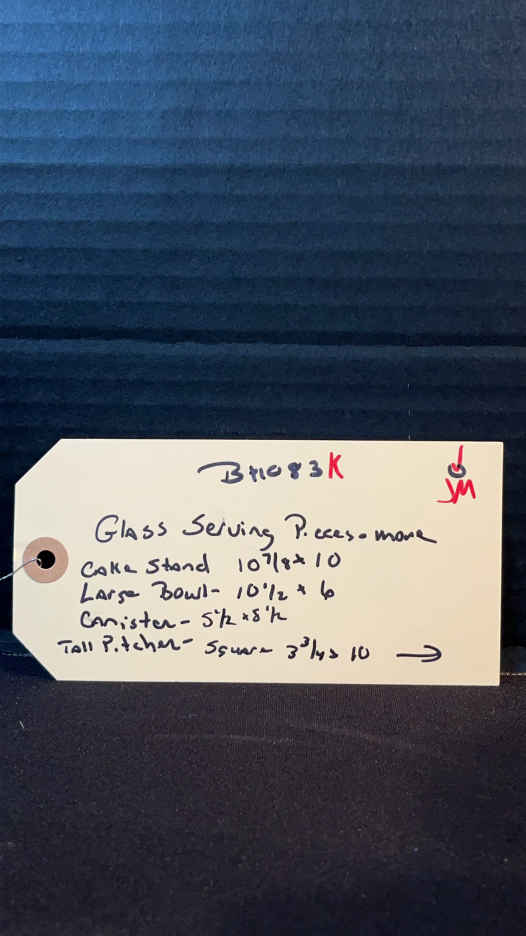 B#1083K
JM
Glass Serving Pieces & more
Cake Stand 10 7/8 x 10
Large Bowl - 10 1/2 x 6
Canister - 5 1/2 x 8 1/2
Tall Pitcher - Square 3 3/4 x 10 →